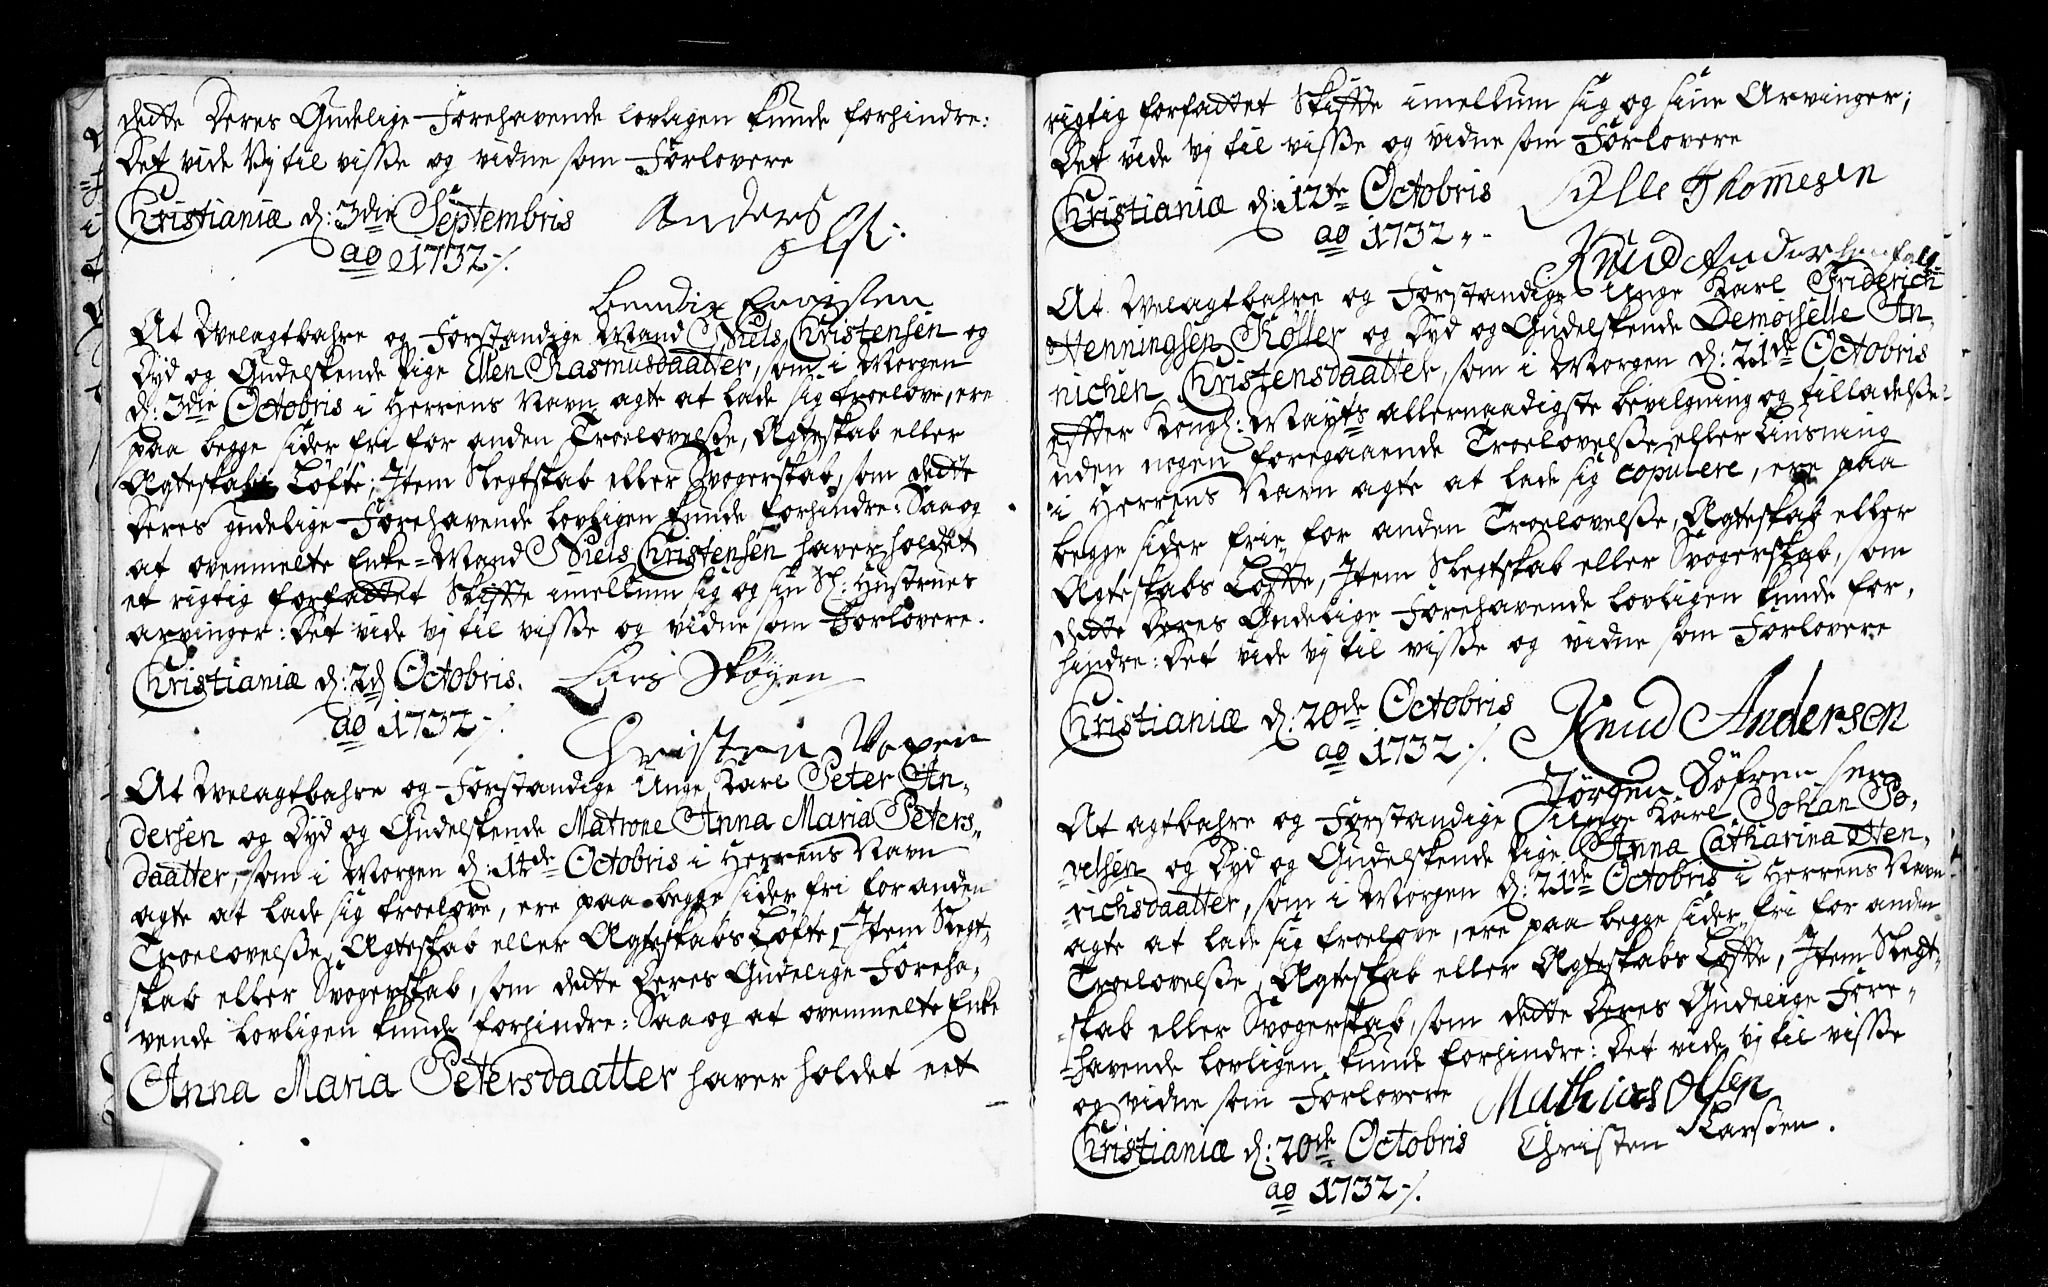 dette Deres Gudelige Forehavende lovligen kunde forhindre:
Det vide Vj til visse og vidne som Forlovere
Christianiæ d: 3die Septembris Anders
ao 1732 ./.
Bendix
At Velagtbahre og Forstandige Mand Niels Christensen og
Dyd og Gudelskende Pige Ellen Rasmusdaatter, som i Morgen
d: 3die Octobris i Herrens Navn agte at lade sig troelove, ere
paa begge sider fri for anden Troelovelsse, Ægteskab eller
Ægteskabs Løfte; Item Slegtskab eller Svogerskab, som dette
Deres gudelige Forehavende lovligen kunde forhindre: Saa og
at ovenmelte Enke-Mand Niels Christensen haver holdet
et rigtig forfattet Skifte imellum sig og sin Sl: Hustrues
arvinger: Det vide Vj til visse og vidne som Forlovere.
Christianiæ d: 2d Octobris. Lars Skøyen
ao 1732 ./.
Christen
At Velagtbahre og Forstandige Unge Karl Peter An-
dersen og Dyd og Gudelskende Matrone Anna Maria Peters-
daatter, som i Morgen d: 14de Octobris i Herrens Navn
agte at lade sig troelove, ere paa begge sider fri for anden
Troelovelsse, Ægteskab eller Ægteskabs Løfte, Item Slegt-
skab eller Svogerskab, som dette Deres Gudelige Foreha-
vende lovligen kunde forhindre: Saa og at ovenmelte Enke
Anna Maria Petersdaatter haver holdet eet
rigtig forfattet Skifte imellum sig og sine Arvinger;
Det vide Vj til visse og vidne som Forlovere
Christianiæ d: 12te Octobris Olle Thomesen
ao 1732
Knud
At Velagtbahre og Forstandige Unge Karl Friderich
Henningsen Køller og Dyd og Gudelskende Demoiselle An-
nichen Christensdaatter, som i Morgen d: 21de Octobris
efter Kongl: Mayts allernaadigste bevilgning og tilladelse
uden nogen foregaaende Troelovelsse eller Liusning
i Herrens Navn agte at lade sig copulere, ere paa
begge sider frie for anden Troelovelsse, Ægteskab eller
Ægteskabs Løfte, Item Slegtskab eller Svogerskab, som
dette Deres Gudelige Forehavende lovligen kunde for-
hindre: Det vide Vj til visse og vidne som Forlovere
Christianiæ d: 20de Octobris Knud Andersen
ao 1732 ./.
Jørgen Søfren sen
At agtbahre og Forstandige Unge Karl Johan Po-
velsen og Dyd og Gudelskende Pige Anna Catharina Hen-
richsdaatter, som i Morgen d: 21de Octobris i Herrens Navn
agte at lade sig troelove, ere paa begge sider fri for anden
Troelovelsse, Ægteskab eller Ægteskabs Løfte, Item Slegt-
skab eller Svogerskab, som dette Deres Gudelige Fore-
havende lovligen kunde forhindre: Det vide Vj til visse
og vidne som Forlovere Mathias Olsen
Christianiæ d: 20de Octobris Christen Larssen.
ao 1732 ./.